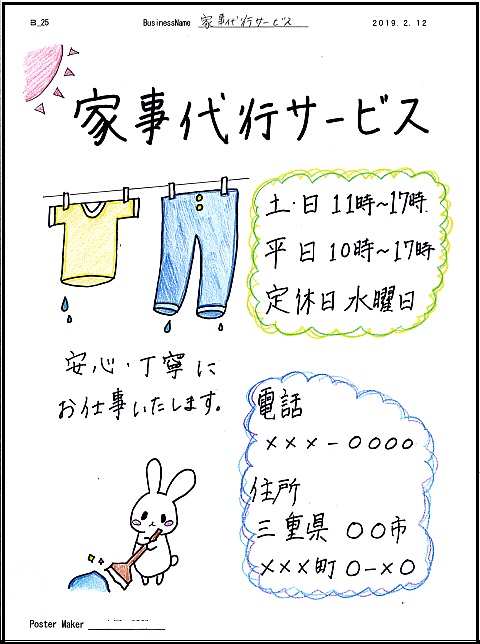 B_25 BusinessName 家事代行サービス 2019. 2. 12
家事代行サービス
土・日 11時~17時
平日 10時~17時
定休日 水曜日
安心・丁寧に
お仕事いたします。
電話
×××-〇〇〇〇
住所
三重県 〇〇市
×××町〇-×〇
Poster Maker